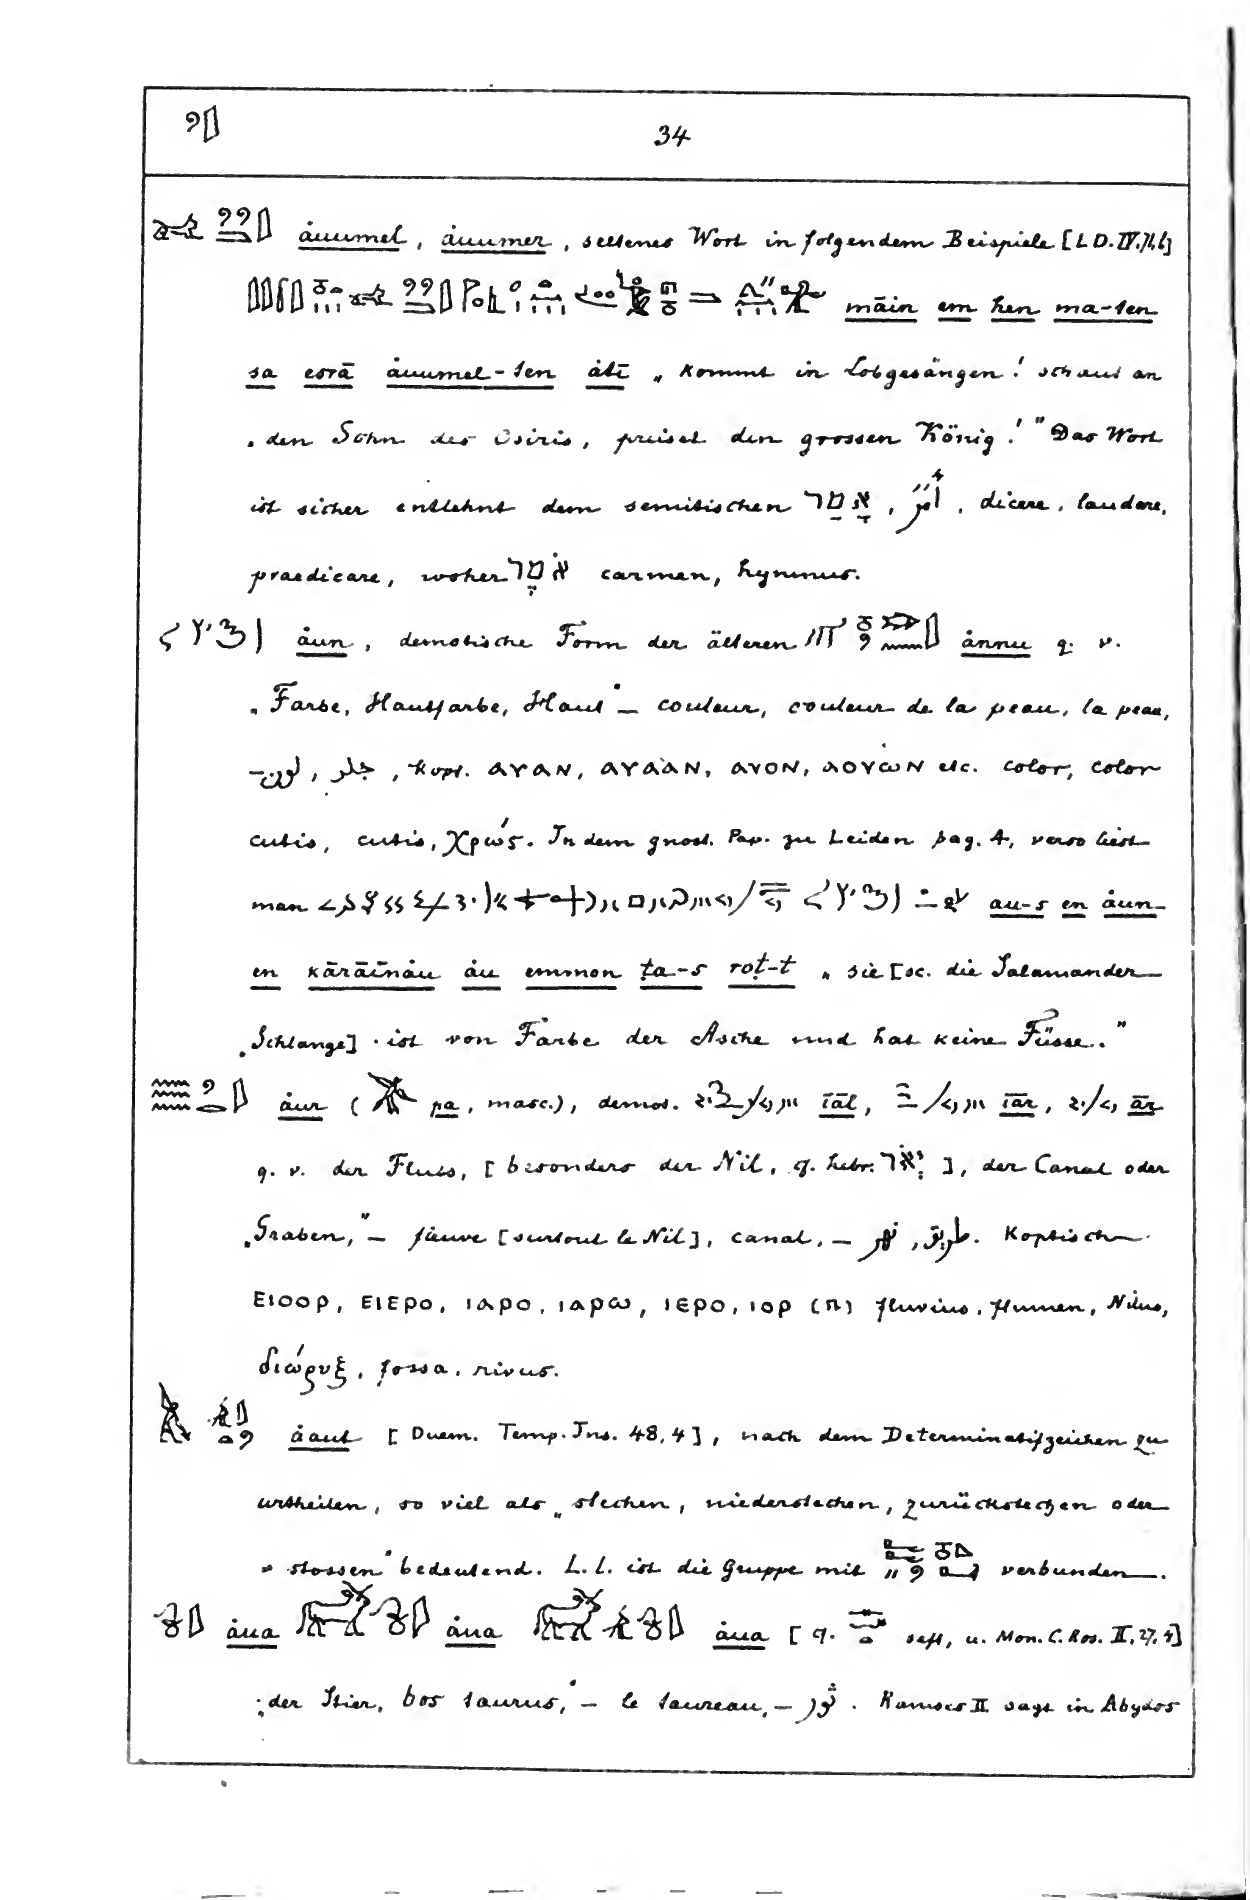 34
áuumel, áuumer, seltenes Wort in folgendem Beispiele [LD. IV.71,b]
māin em hen ma-ten
sa esrā áuumel-ten átī „kommt in Lobgesängen! schaut an
„den Sohn des Osiris, preiset den grossen König!" Das Wort
ist sicher entlehnt dem semitischen אָמַר, أمر, dicere, laudare,
praedicare, woher אֹמֶר carmen, hymnus.
áun, demotische Form der älteren ánnu q. v.
„Farbe, Hautfarbe, Haut" — couleur, couleur de la peau, la peau,
— لون, جلد, Kopt. ⲁⲩⲁⲛ, ⲁⲩⲁⲁⲛ, ⲁⲩⲟⲛ, ⲁⲟⲩⲱⲛ etc. color, color
cutis, cutis, χρώς. In dem gnost. Pap. zu Leiden pag. 4, verso liest
man au-s en áun-
en kārāīnáu áu emmon ṭa-s roṭ-t „sie [sc. die Salamander-
„Schlange] ist von Farbe der Asche und hat keine Füsse."
áur (pa, masc.), demot. īāl, īār, ār
q. v. der Fluss, [besonders der Nil, cf. hebr. יְאֹר], der Canal oder
„Graben," — fleuve [surtout le Nil], canal, — نهر, طريق. Koptisch
ⲉⲓⲟⲟⲣ, ⲉⲓⲉⲣⲟ, ⲓⲁⲣⲟ, ⲓⲁⲣⲱ, ⲓⲉⲣⲟ, ⲓⲟⲣ (ⲡ) fluvius, flumen, Nilus,
διώρυξ, fossa, rivus.
áaut [Duem. Temp. Ins. 48,4], nach dem Determinatifzeichen zu
urtheilen, so viel als „stechen, niederstechen, zurückstechen oder
„stossen" bedeutend. L. l. ist die Gruppe mit verbunden.
áua áua áua [cf. seft, u. Mon. C. Ros. II, 27, 4]
„der Stier, bos taurus," — le taureau, — ثور. Ramses II sagt in Abydos